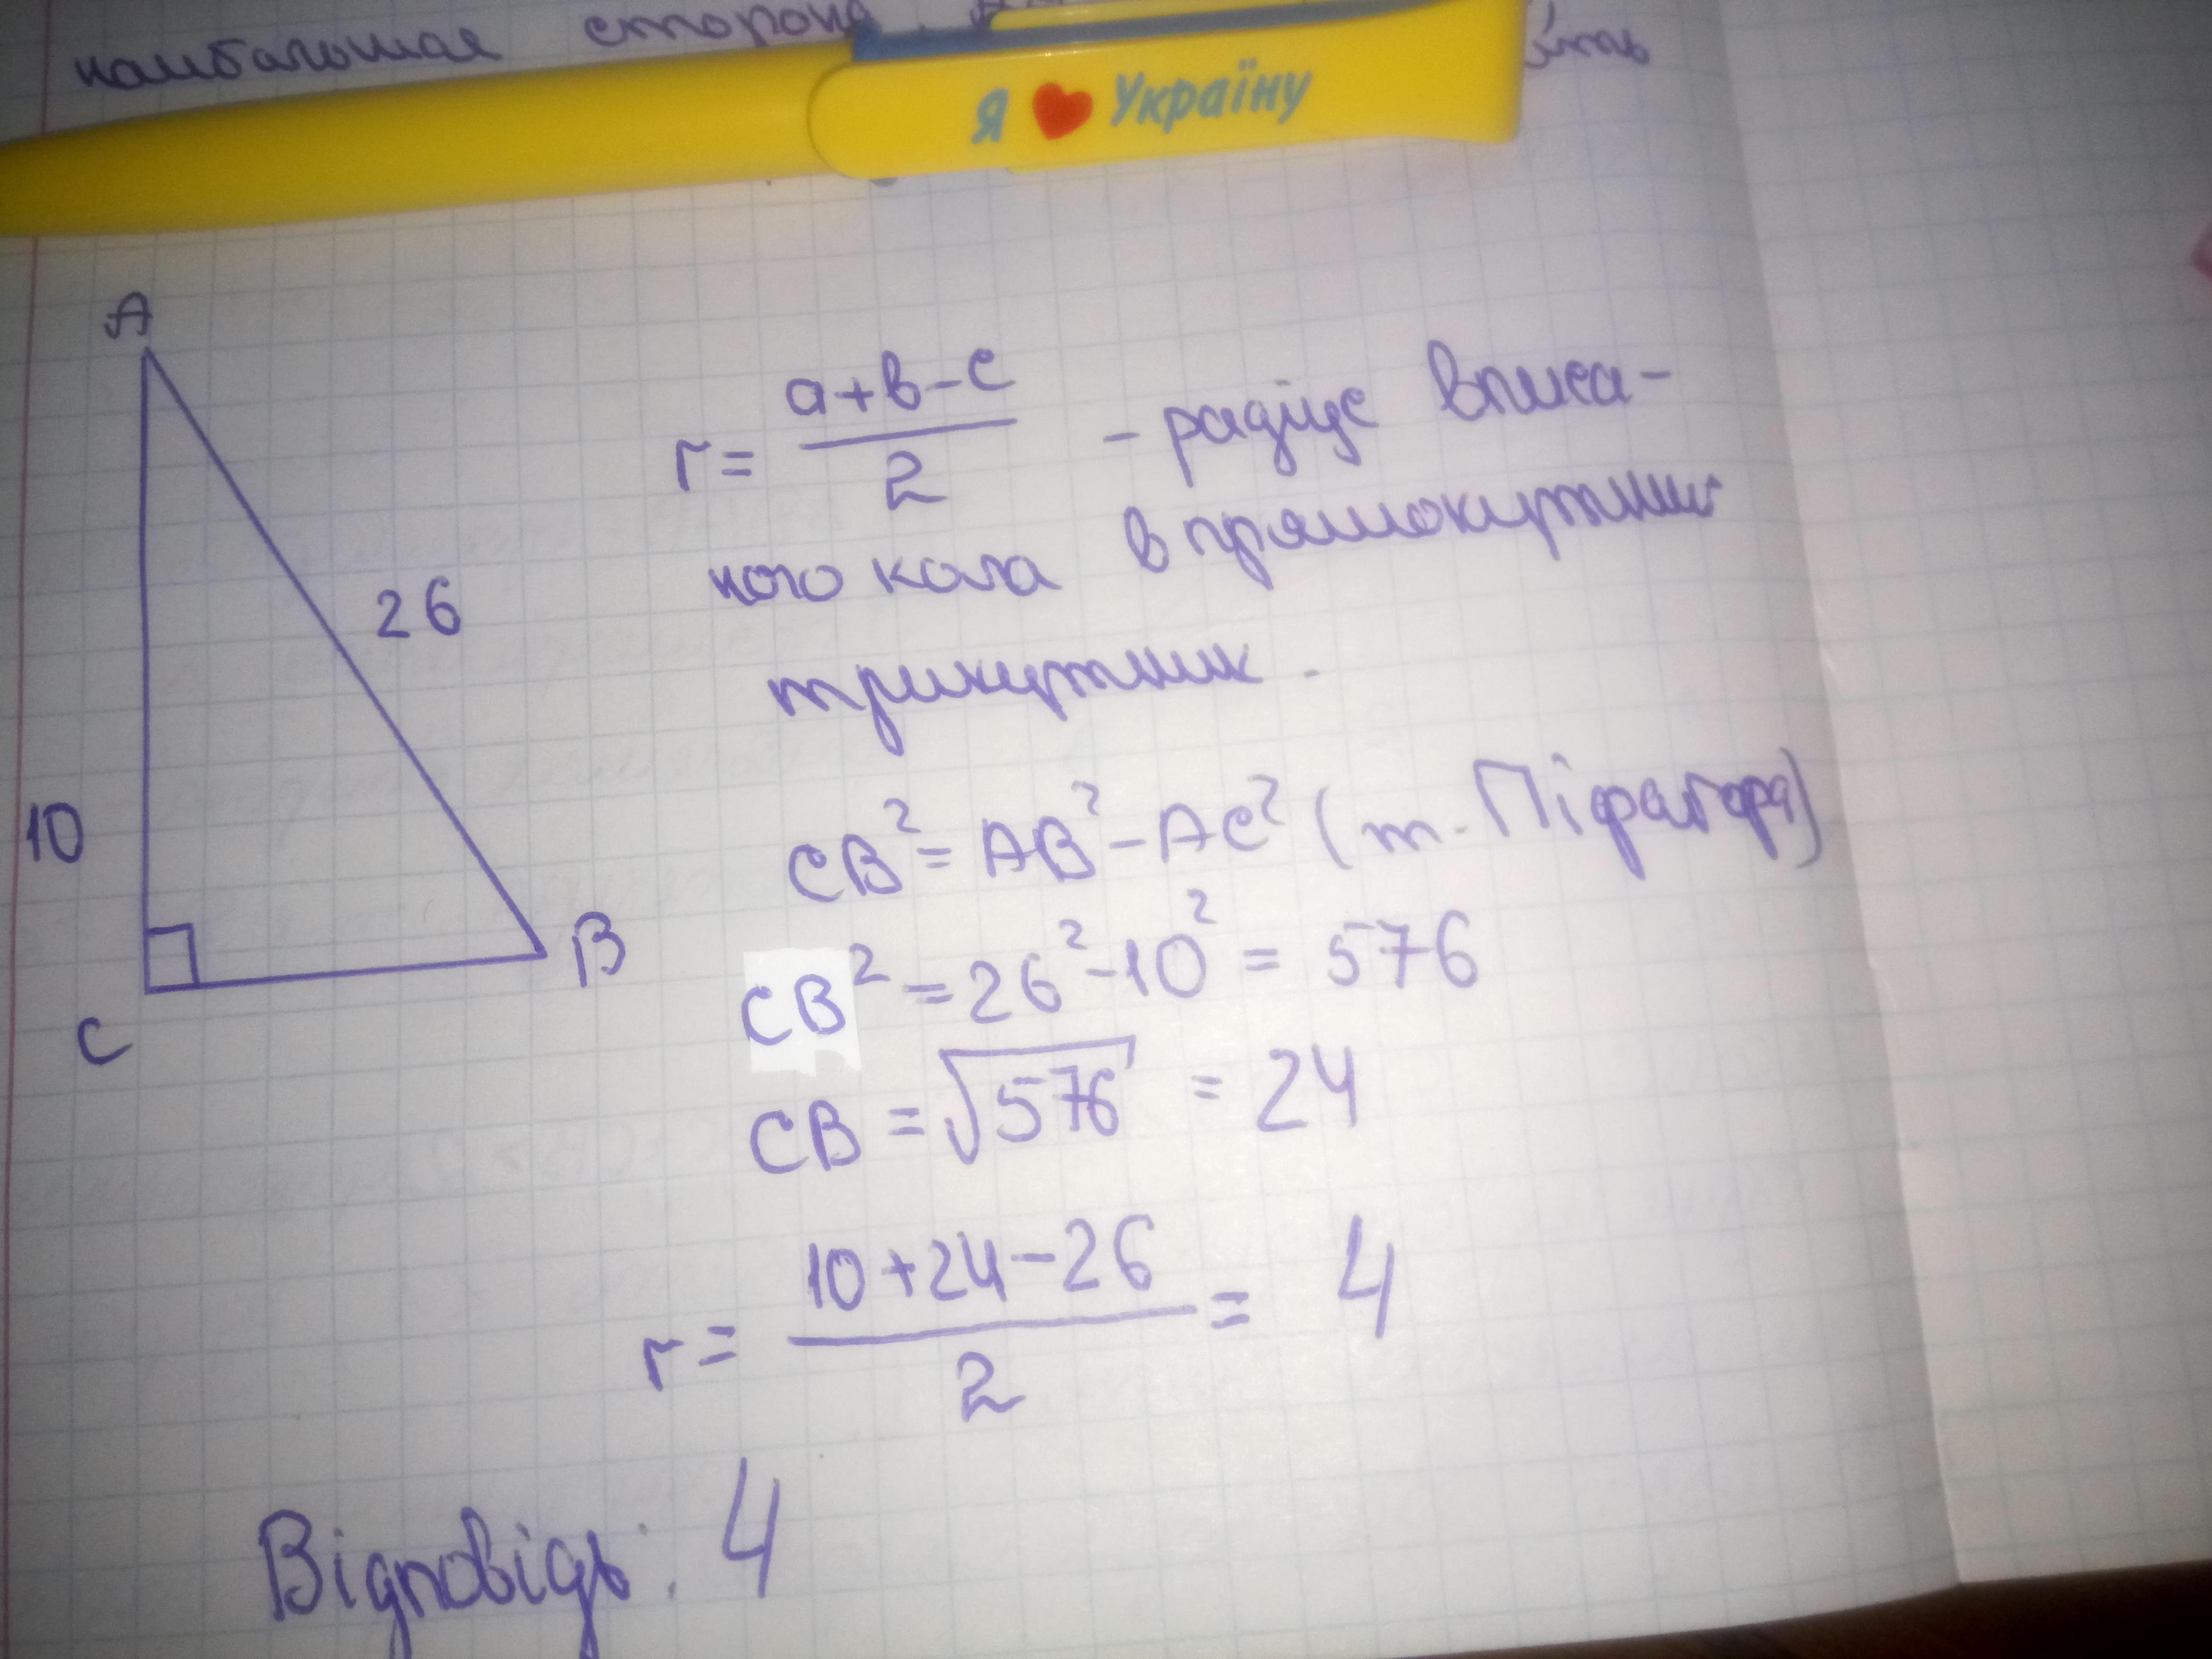 наибольшая сторона
Я ❤ Україну
A
r = \frac{a+b-c}{2} - радіус вписа-
ного кола в прямокутний
26
трикутник.
10
CB² = AB² - AC² (т. Піфагора)
B
CB² = 26² - 10² = 576
C
CB = √576 = 24
r = \frac{10+24-26}{2} = 4
Відповідь: 4